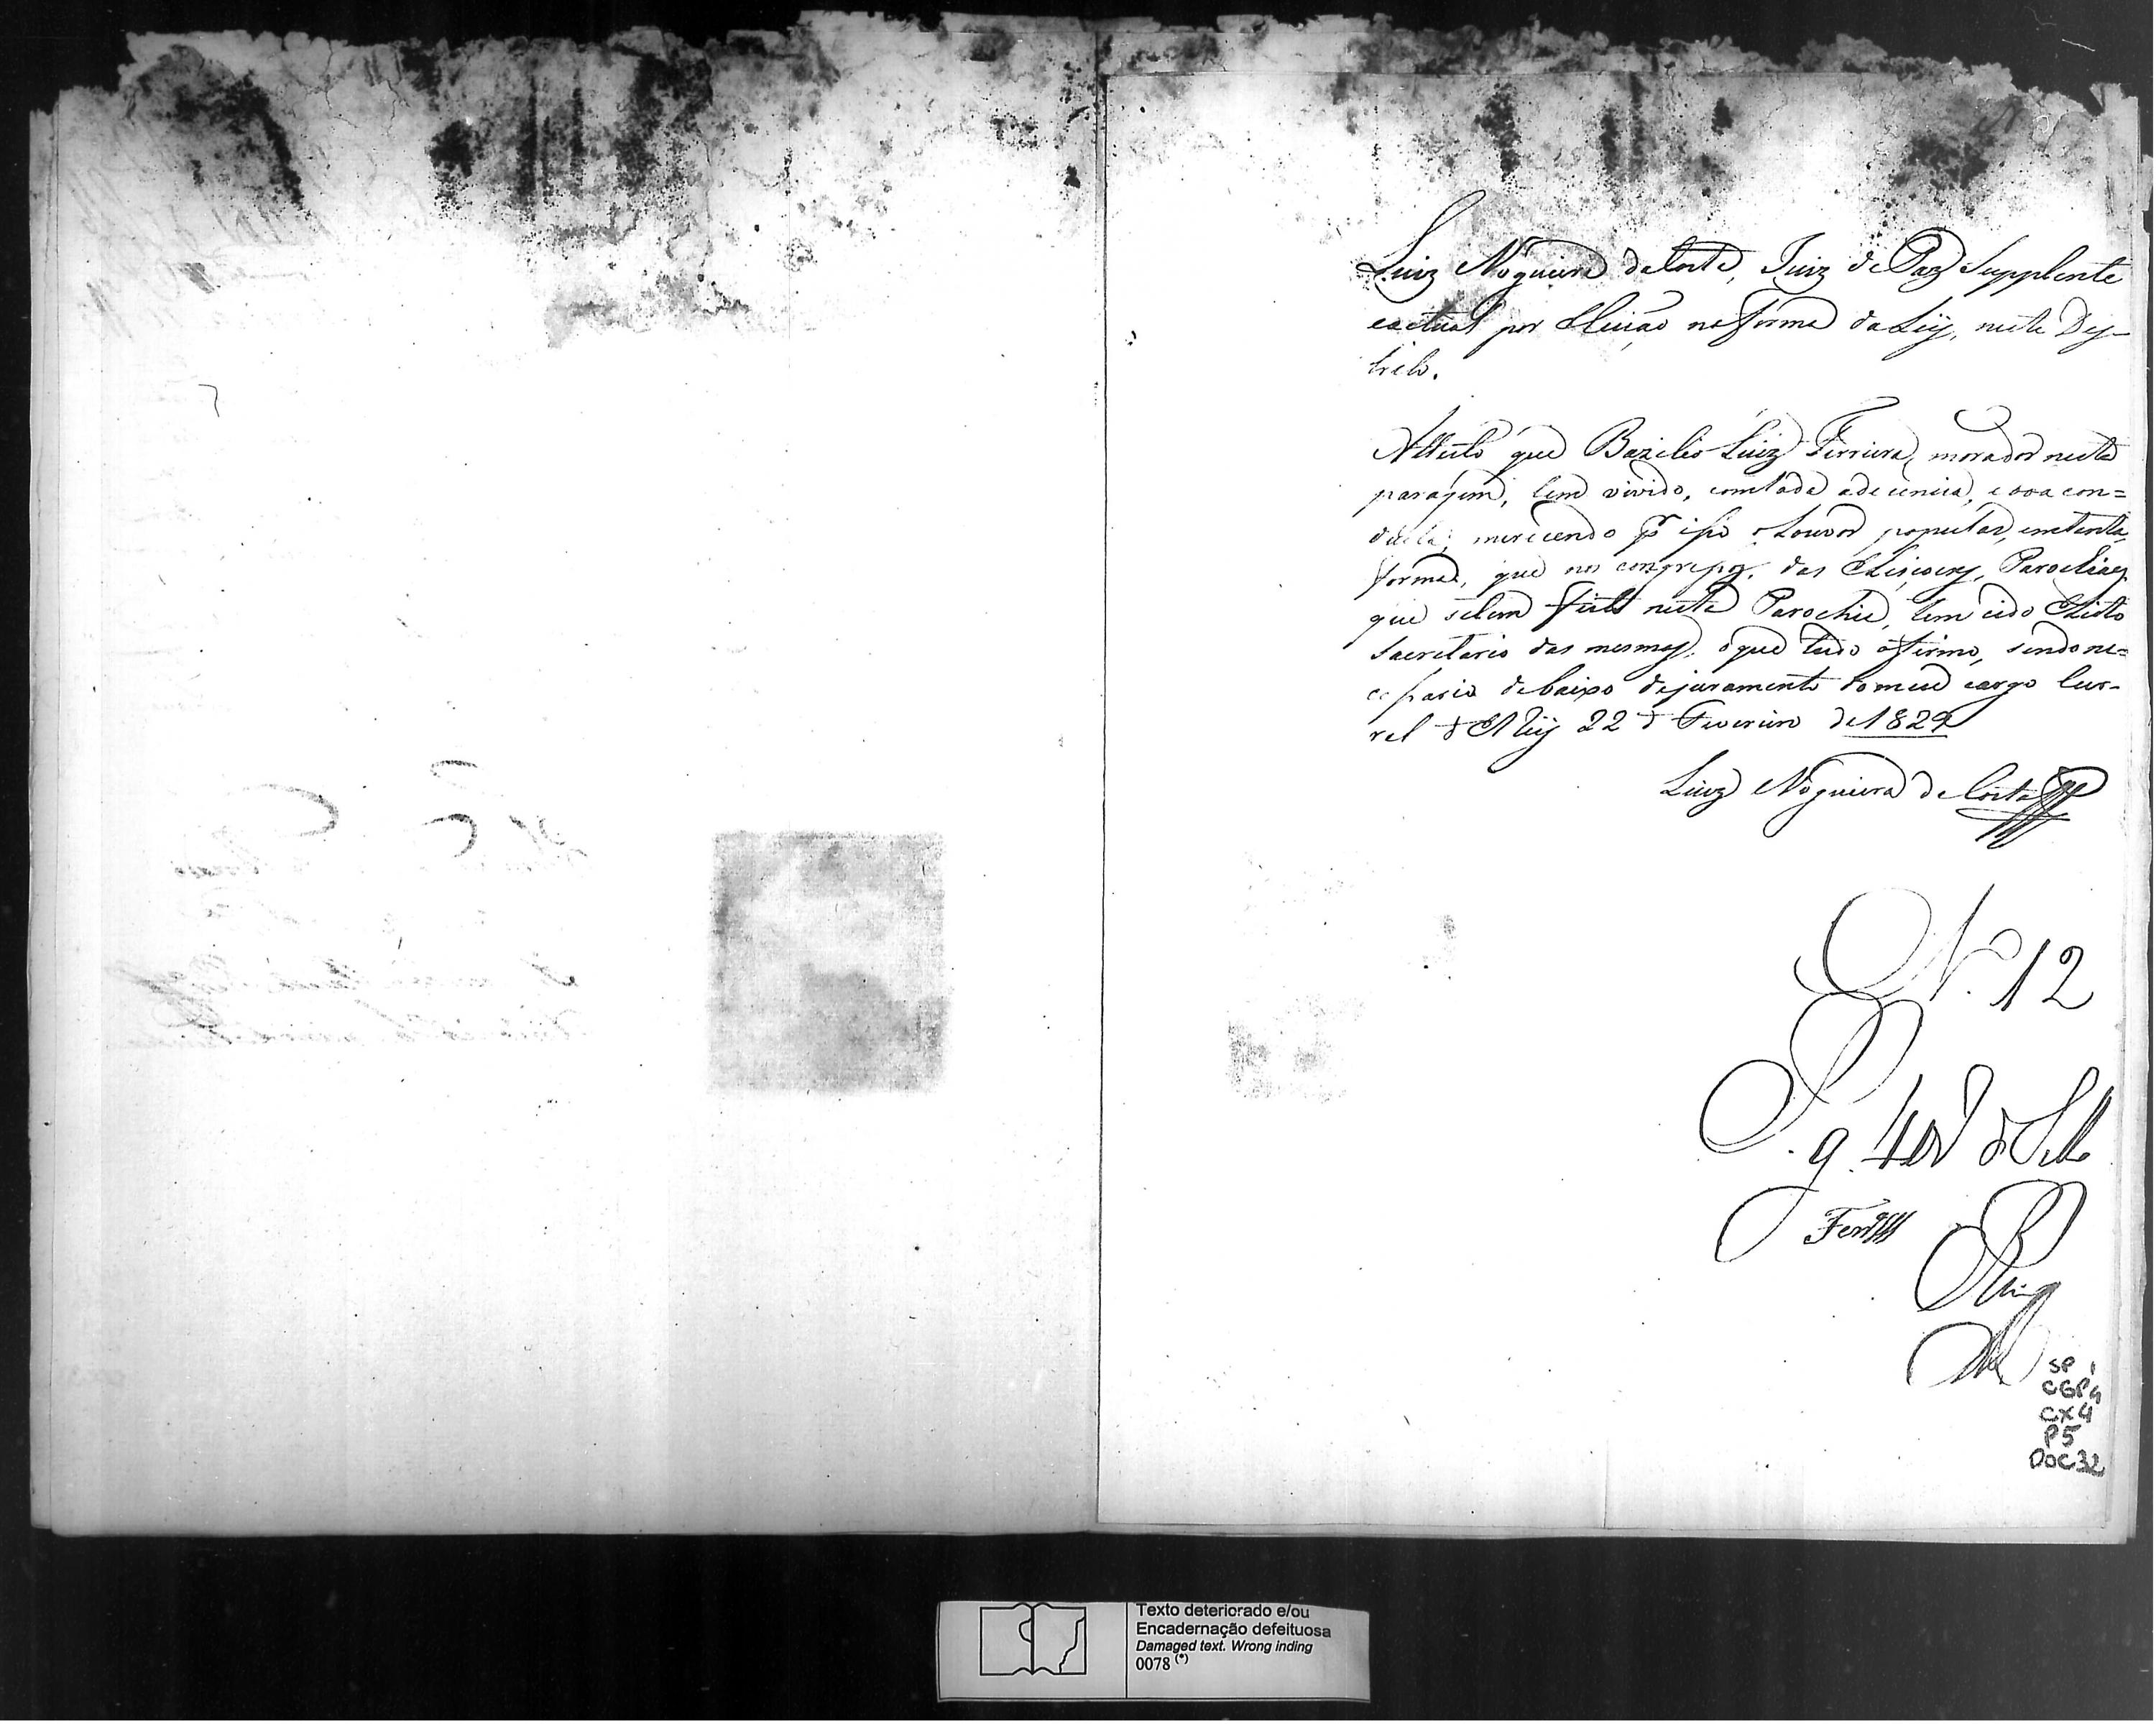 Luiz Nogueira da Costa, Juiz de Paz Supplente
eactual por Eleicão na forma da Ley, neste Des-
trito.
Attesto que Bazilio Luiz Ferreira, morador nesta
paragem, tem vivido, com toda adecencia, e boa con=
ducta; merecendo pr isso o Louvor popular, emtanta
forma, que nos congregoz. das Eleicoens, Parochiaes
que setem feito nesta Parochia, tem cido Eleito
Sacretario das mesmas; oque tudo afirmo, sendo ne=
cessario debaixo dejuramento domeu cargo Cur-
ral d'El Rey 22 d Fevereiro de 1829
Luiz Nogueira da Costa
N. 12
P. g. 40 rs d Sello
Ferra
SP 1
CGP4
CX4
P5
DOC32
Texto deteriorado e/ou
Encadernação defeituosa
Damaged text. Wrong inding
0078 (*)